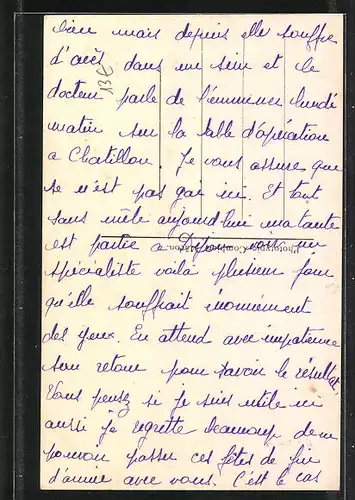 bien mais depuis elle souffre
d'accès dans un sein et le
docteur parle de l'emmener lundi
matin sur la table d'opération
a Chatillon. Je vous assure que
se n'est pas gai ici. Et tout
sans mêle aujourd'hui ma tante
est partie a Dijon voir un
spécialiste voilà plusieurs jours
qu'elle souffrait énormément
des yeux. En attend avec impatience
son retour pour savoir le résultat,
Vous pensez si je suis utile ici
aussi je regrette beaucoup de ne
pouvoir passer ces fêtes de fin
d'année avec vous. C'est le cas
13€